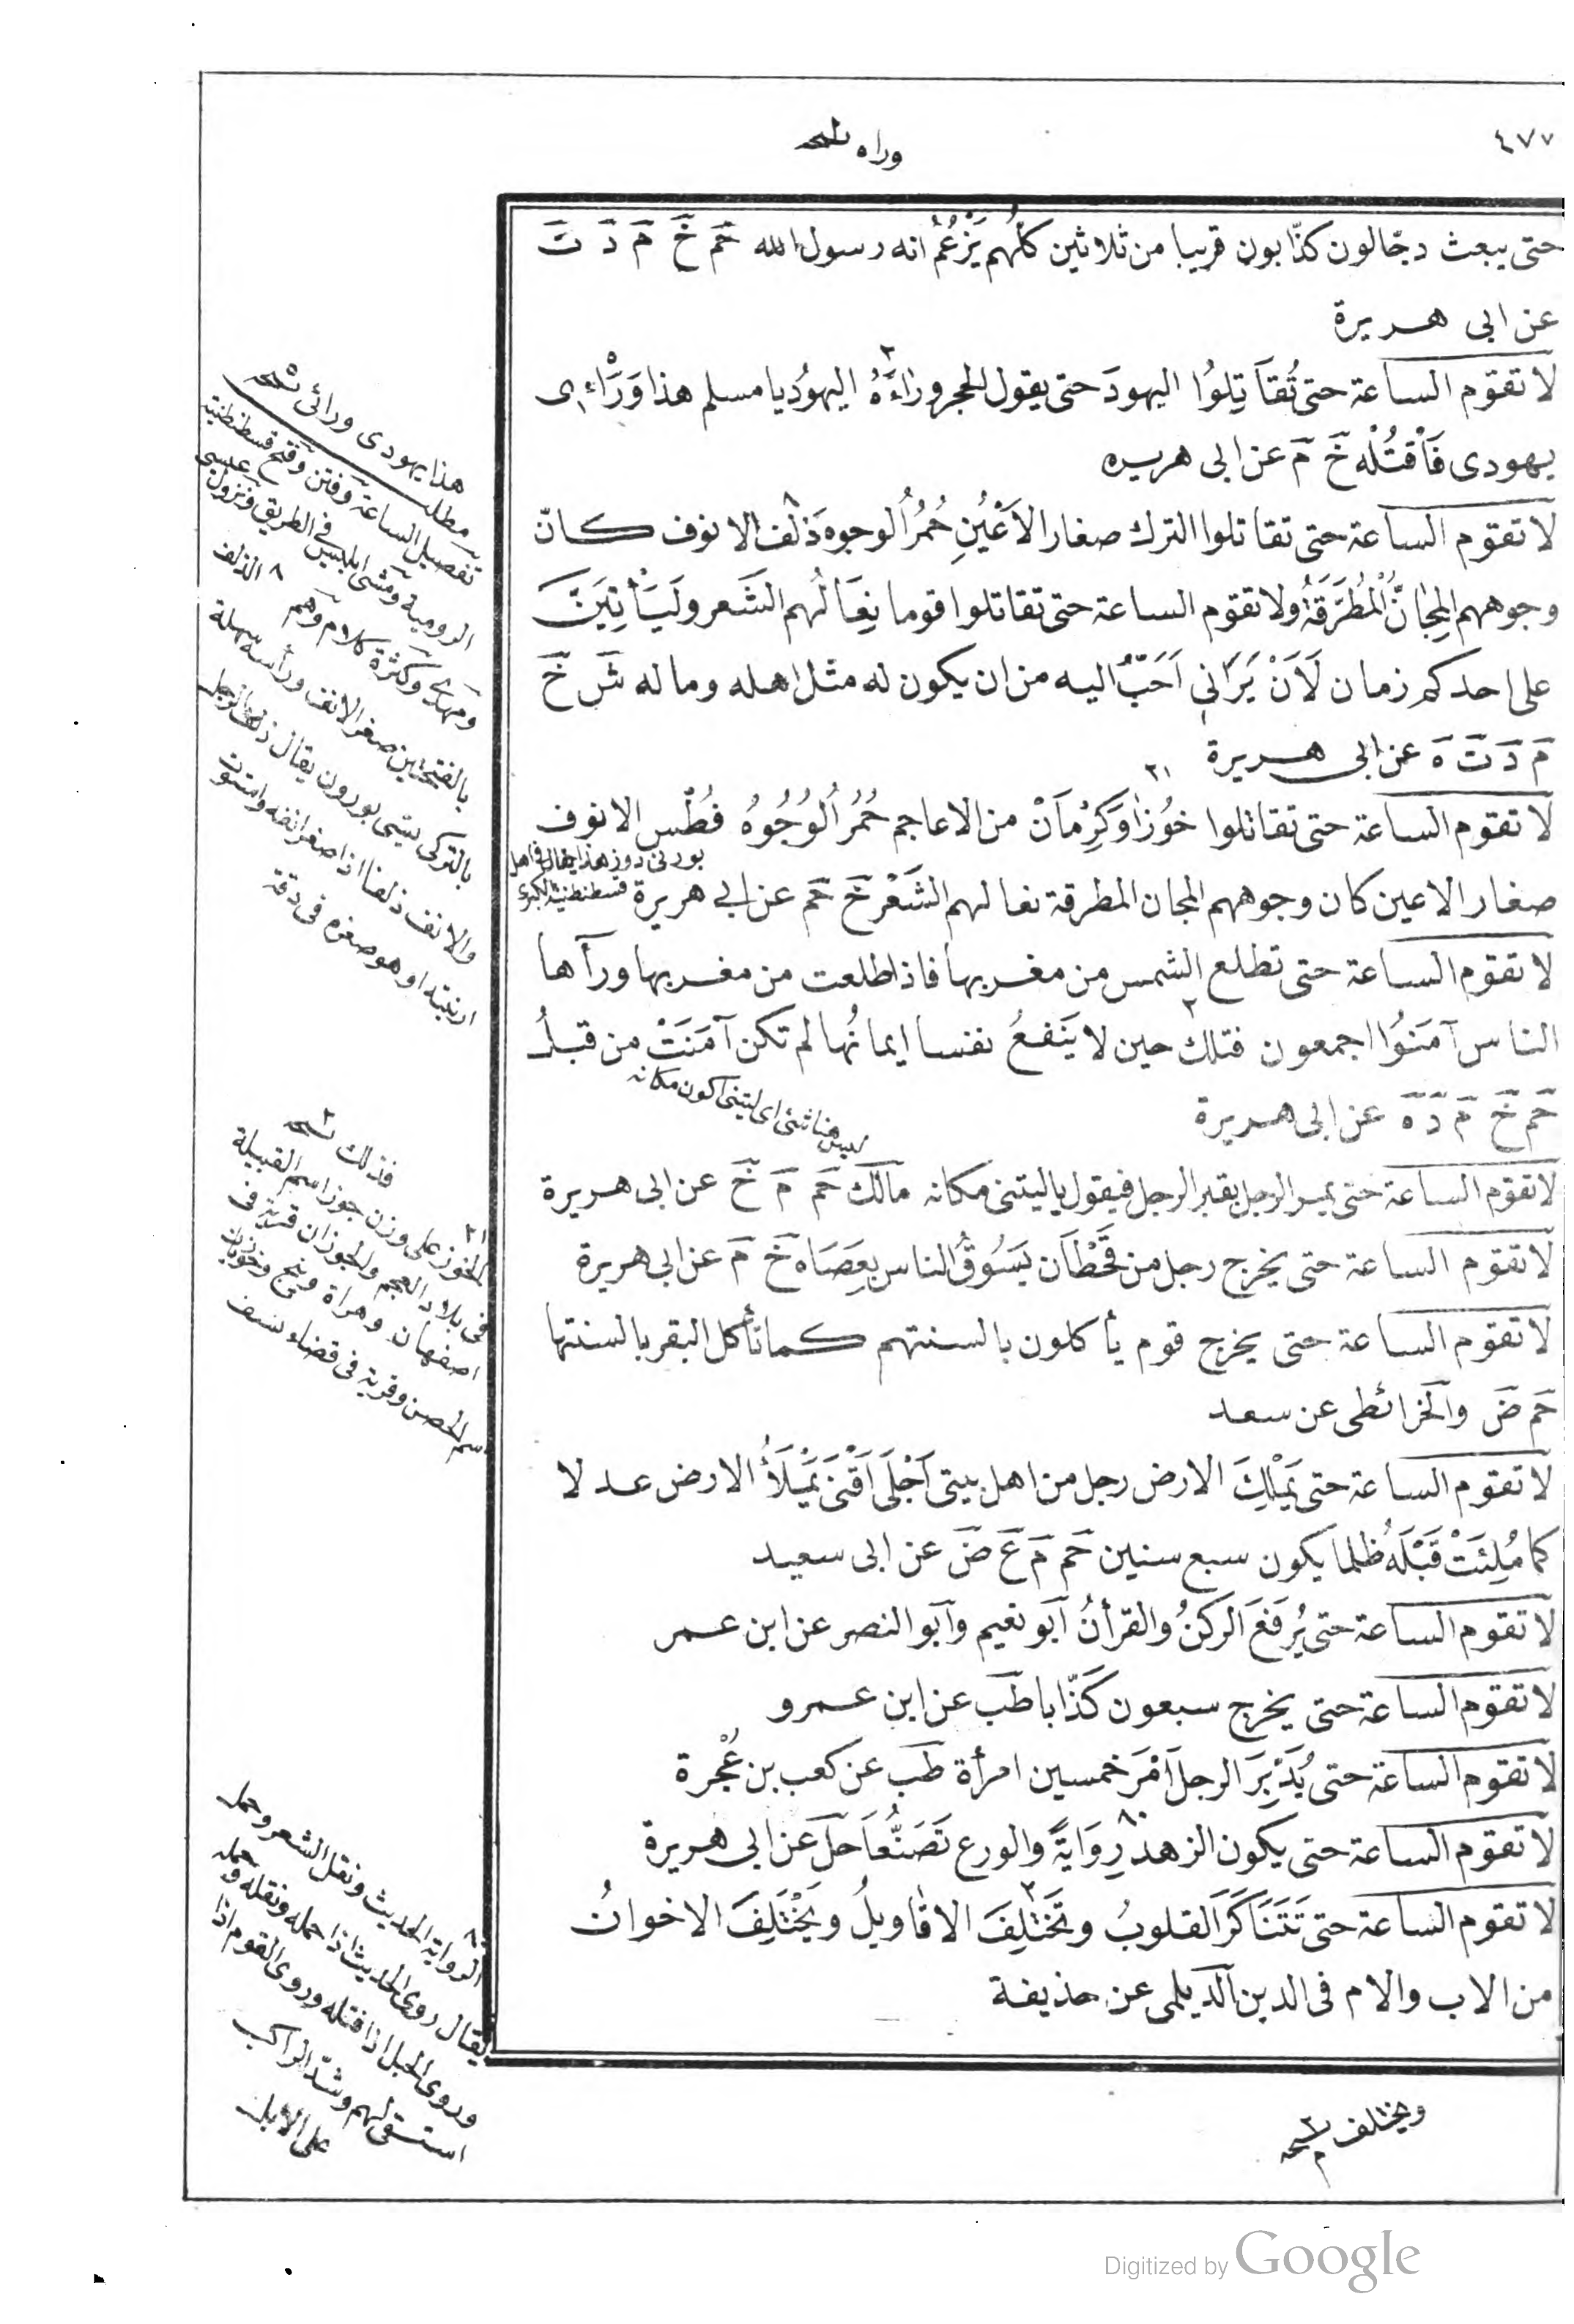 ٤٧٧
وراه نسخه
حتى يبعث دجّالون كذّابون قريبا من ثلاثين كلُّهم يَزْعُمُ انه رسول الله حَم خَ مَ دَ تَ
عن ابى هريرة
لا تقوم الساعة حتى تُقاَتِلُوا اليهودَ حتى يقول الحجر وراءَهُ اليهُودُ يا مسلم هذا وَرَاْءِى
يهودى فَاْقْتُلْه خَ مَ عن ابى هريره
لا تقوم الساعة حتى تقاتلوا الترك صغار الاَعْيُنِ حُمْرُ الوجوه ذلف الانوف كانّ
وجوههم المِجَانُّ الْمُطَرَّقَةُ ولا تقوم الساعة حتى تقاتلوا قوما نِعَالُهم الشَعر ولَيَأْتِيَنَّ
على احدكم زمان لَاَنْ يَرَانى اَحَبُّ اليه من ان يكون له مثل اهله وماله شَ خَ
مَ دَ تَ هَ عن ابى هريرة
لا تقوم الساعة حتى تقاتلوا خُوْزًا وَكِرْمَانْ من الاعاجم حُمْرُ الْوُجُوهُ فُطْس الانوف
صغار الاعين كان وجوههم المجان المطرقة نعالهم الشَعْر خَ حَم عن ابى هريرة
لا تقوم الساعة حتى تطلع الشمس من مغربها فاذا طلعت من مغربها ورآها
الناس آمَنُوْا اجمعون فتلك حين لا يَنفعُ نفسا ايمانُها لم تكن آمَنَتْ من قبلُ
حَم خَ مَ دَ هَ عن ابى هريرة
ليس هنا شئ اى ليتنى اكون مكانه
لا تقوم الساعة حتى يمر الرجل بقبر الرجل فيقول ياليتنى مكانه مالك حَم مَ خَ عن ابى هريرة
لا تقوم الساعة حتى يخرج رجل من قَحْطَان يَسُوْقُ الناس بِعَصَاه خَ مَ عن ابى هريرة
لا تقوم الساعة حتى يخرج قوم يأكلون بالسنتهم كما تأكل البقر بالسنتها
حَم ضَ والخرائطى عن سعد
لا تقوم الساعة حتى يَمْلِكَ الارض رجل من اهل بيتى اَجْلَى اَقْنَى يَمْلَأُ الارض عدلا
كما مُلِئَتْ قَبْلَهُ ظلما يكون سبع سنين حَم مَ عَ ضَ عن ابى سعيد
لا تقوم الساعة حتى يُرفَعَ الركنُ والقرأنُ ابو نعيم وابو النصر عن ابن عمر
لا تقوم الساعة حتى يخرج سبعون كَذّابا طَب عن ابن عمرو
لا تقوم الساعة حتى يُدَبِّرَ الرجل اَمْرَ خمسين امرأة طَب عن كعب بن عُجْرة
لا تقوم الساعة حتى يكون الزهد رِوَايَةً والورع تَصَنُّعاً حَل عن ابى هريرة
لا تقوم الساعة حتى تَتَنَاكَرَ القلوبُ وتَختَلِفَ الاقاويلُ ويَخْتَلِفَ الاخوانُ
من الاب والام فى الدين الديلمى عن حذيفة
ويختلف نسخه م
هذا يهودى ورائى نسخه
مطلب
تفصيل الساعة وفتن وفتح قسطنطنية
الرومية ومشى ابليس فى الطريق ونزول عيسى
ومهدى وكثرة كلام وهم
٨ الذلف
بالفتحتين صغر الانف ورأسه سهلة
والانف ذلفا اذا صغر انفه وامتوت
ارنبته او هو صغره فى دقة
فذلك نسخه
الخوز على وزن جوز اسم القبيلة
فى بلاد العجم والجوزان قرية فى
اصفهان وهراة
اسم الحصن وقرية فى قضاء نسف
الرواية الحديث ونقل الشعر وحمل
يقال روى الحديث اذا حمله ونقله
وروى الحبل اذا فتله وروى القوم اذا
استسقى لهم وشدّ الراكب
على الابل
Digitized by Google